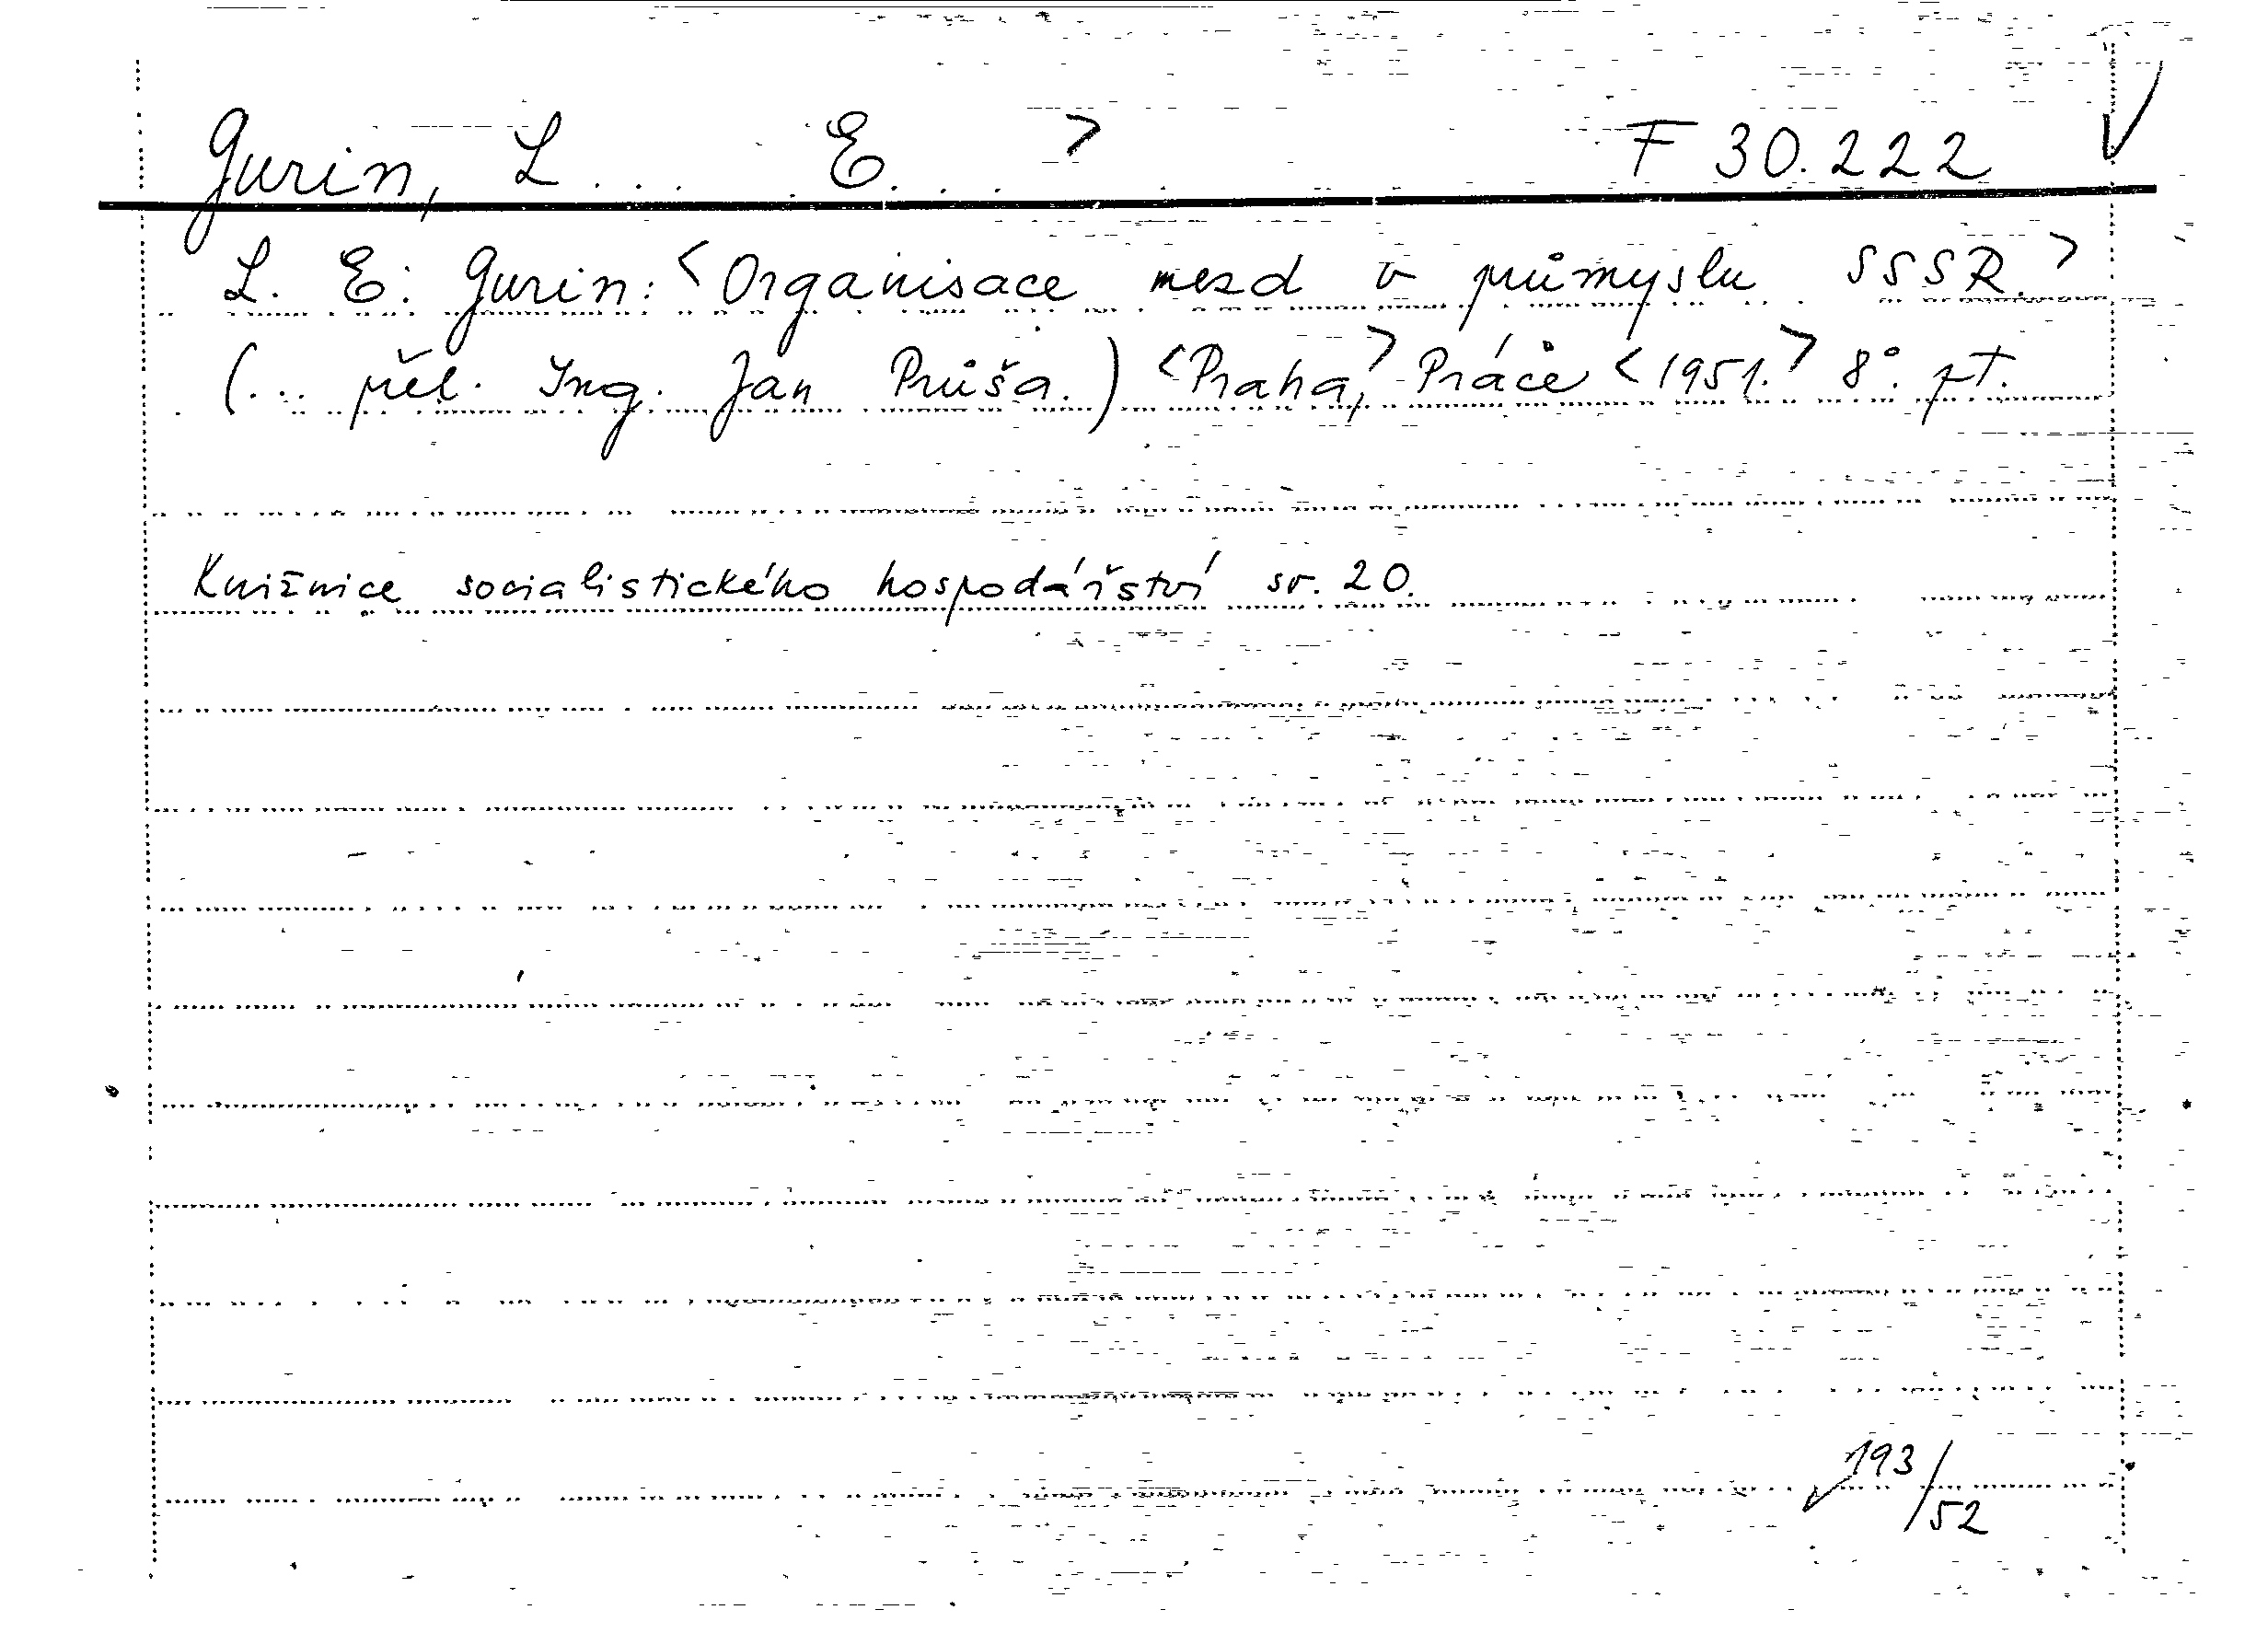 Gurin, L... E...> F 30.222
L. E. Gurin: <Organisace mezd v průmyslu SSSR.>
(... přel. Ing. Jan Průša.) <Praha,> Práce <1951.> 8°. pt.
Knižnice socialistického hospodářství sv. 20.
193/52